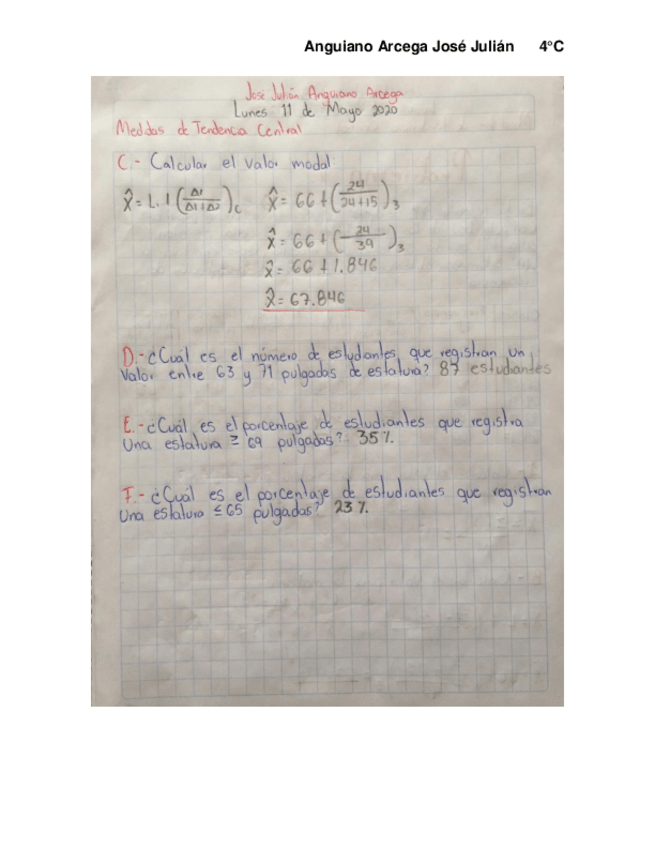 Anguiano Arcega José Julián 4°C
José Julián Anguiano Arcega
Lunes 11 de Mayo 2020
Medidas de Tendencia Central
C.- Calcular el valor modal
x̂= L.I (Δ1/Δ1+Δ2)c x̂= 66+(24/24+15)3
x̂= 66+(24/39)3
x̂= 66+1.846
x̂= 67.846
D.- ¿Cuál es el número de estudiantes que registran un
Valor entre 63 y 71 pulgadas de estatura? 87 estudiantes
E.- ¿Cuál es el porcentaje de estudiantes que registra
Una estatura ≥ 69 pulgadas? 35%.
F.- ¿Cuál es el porcentaje de estudiantes que registran
una estatura ≤65 pulgadas? 23%.